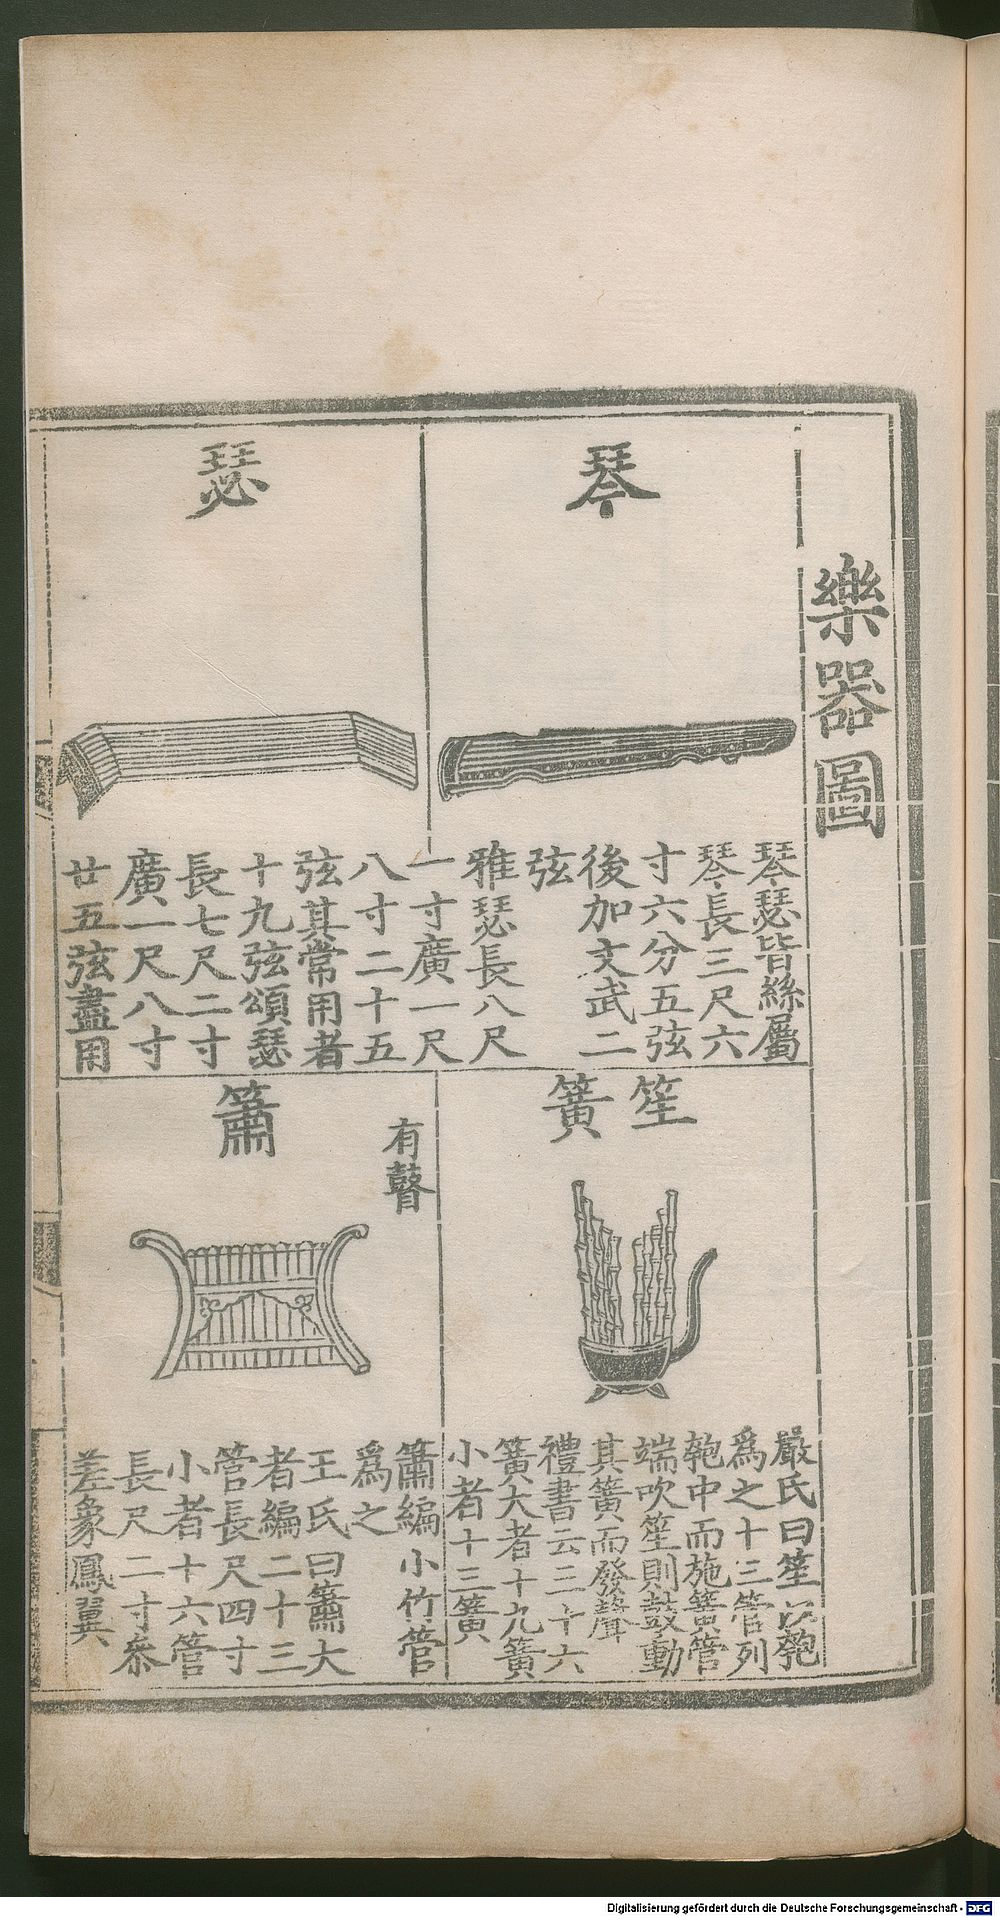 樂器圖
琴
琴瑟皆絲屬
琴長三尺六
寸六分五弦
後加文武二
弦
瑟
雅瑟長八尺
一寸廣一尺
八寸二十五
弦其常用者
十九弦頌瑟
長七尺二寸
廣一尺八寸
廿五弦盡用
笙
簧
嚴氏曰笙以匏
爲之十三管列
匏中而施簧管
端吹笙則鼓動
其簧而發聲
禮書云三十六
簧大者十九簧
小者十三簧
有瞽
簫
簫編小竹管
爲之
王氏曰簫大
者編二十三
管長尺四寸
小者十六管
長尺二寸叅
差象鳳翼
Digitalisierung gefördert durch die Deutsche Forschungsgemeinschaft - DFG